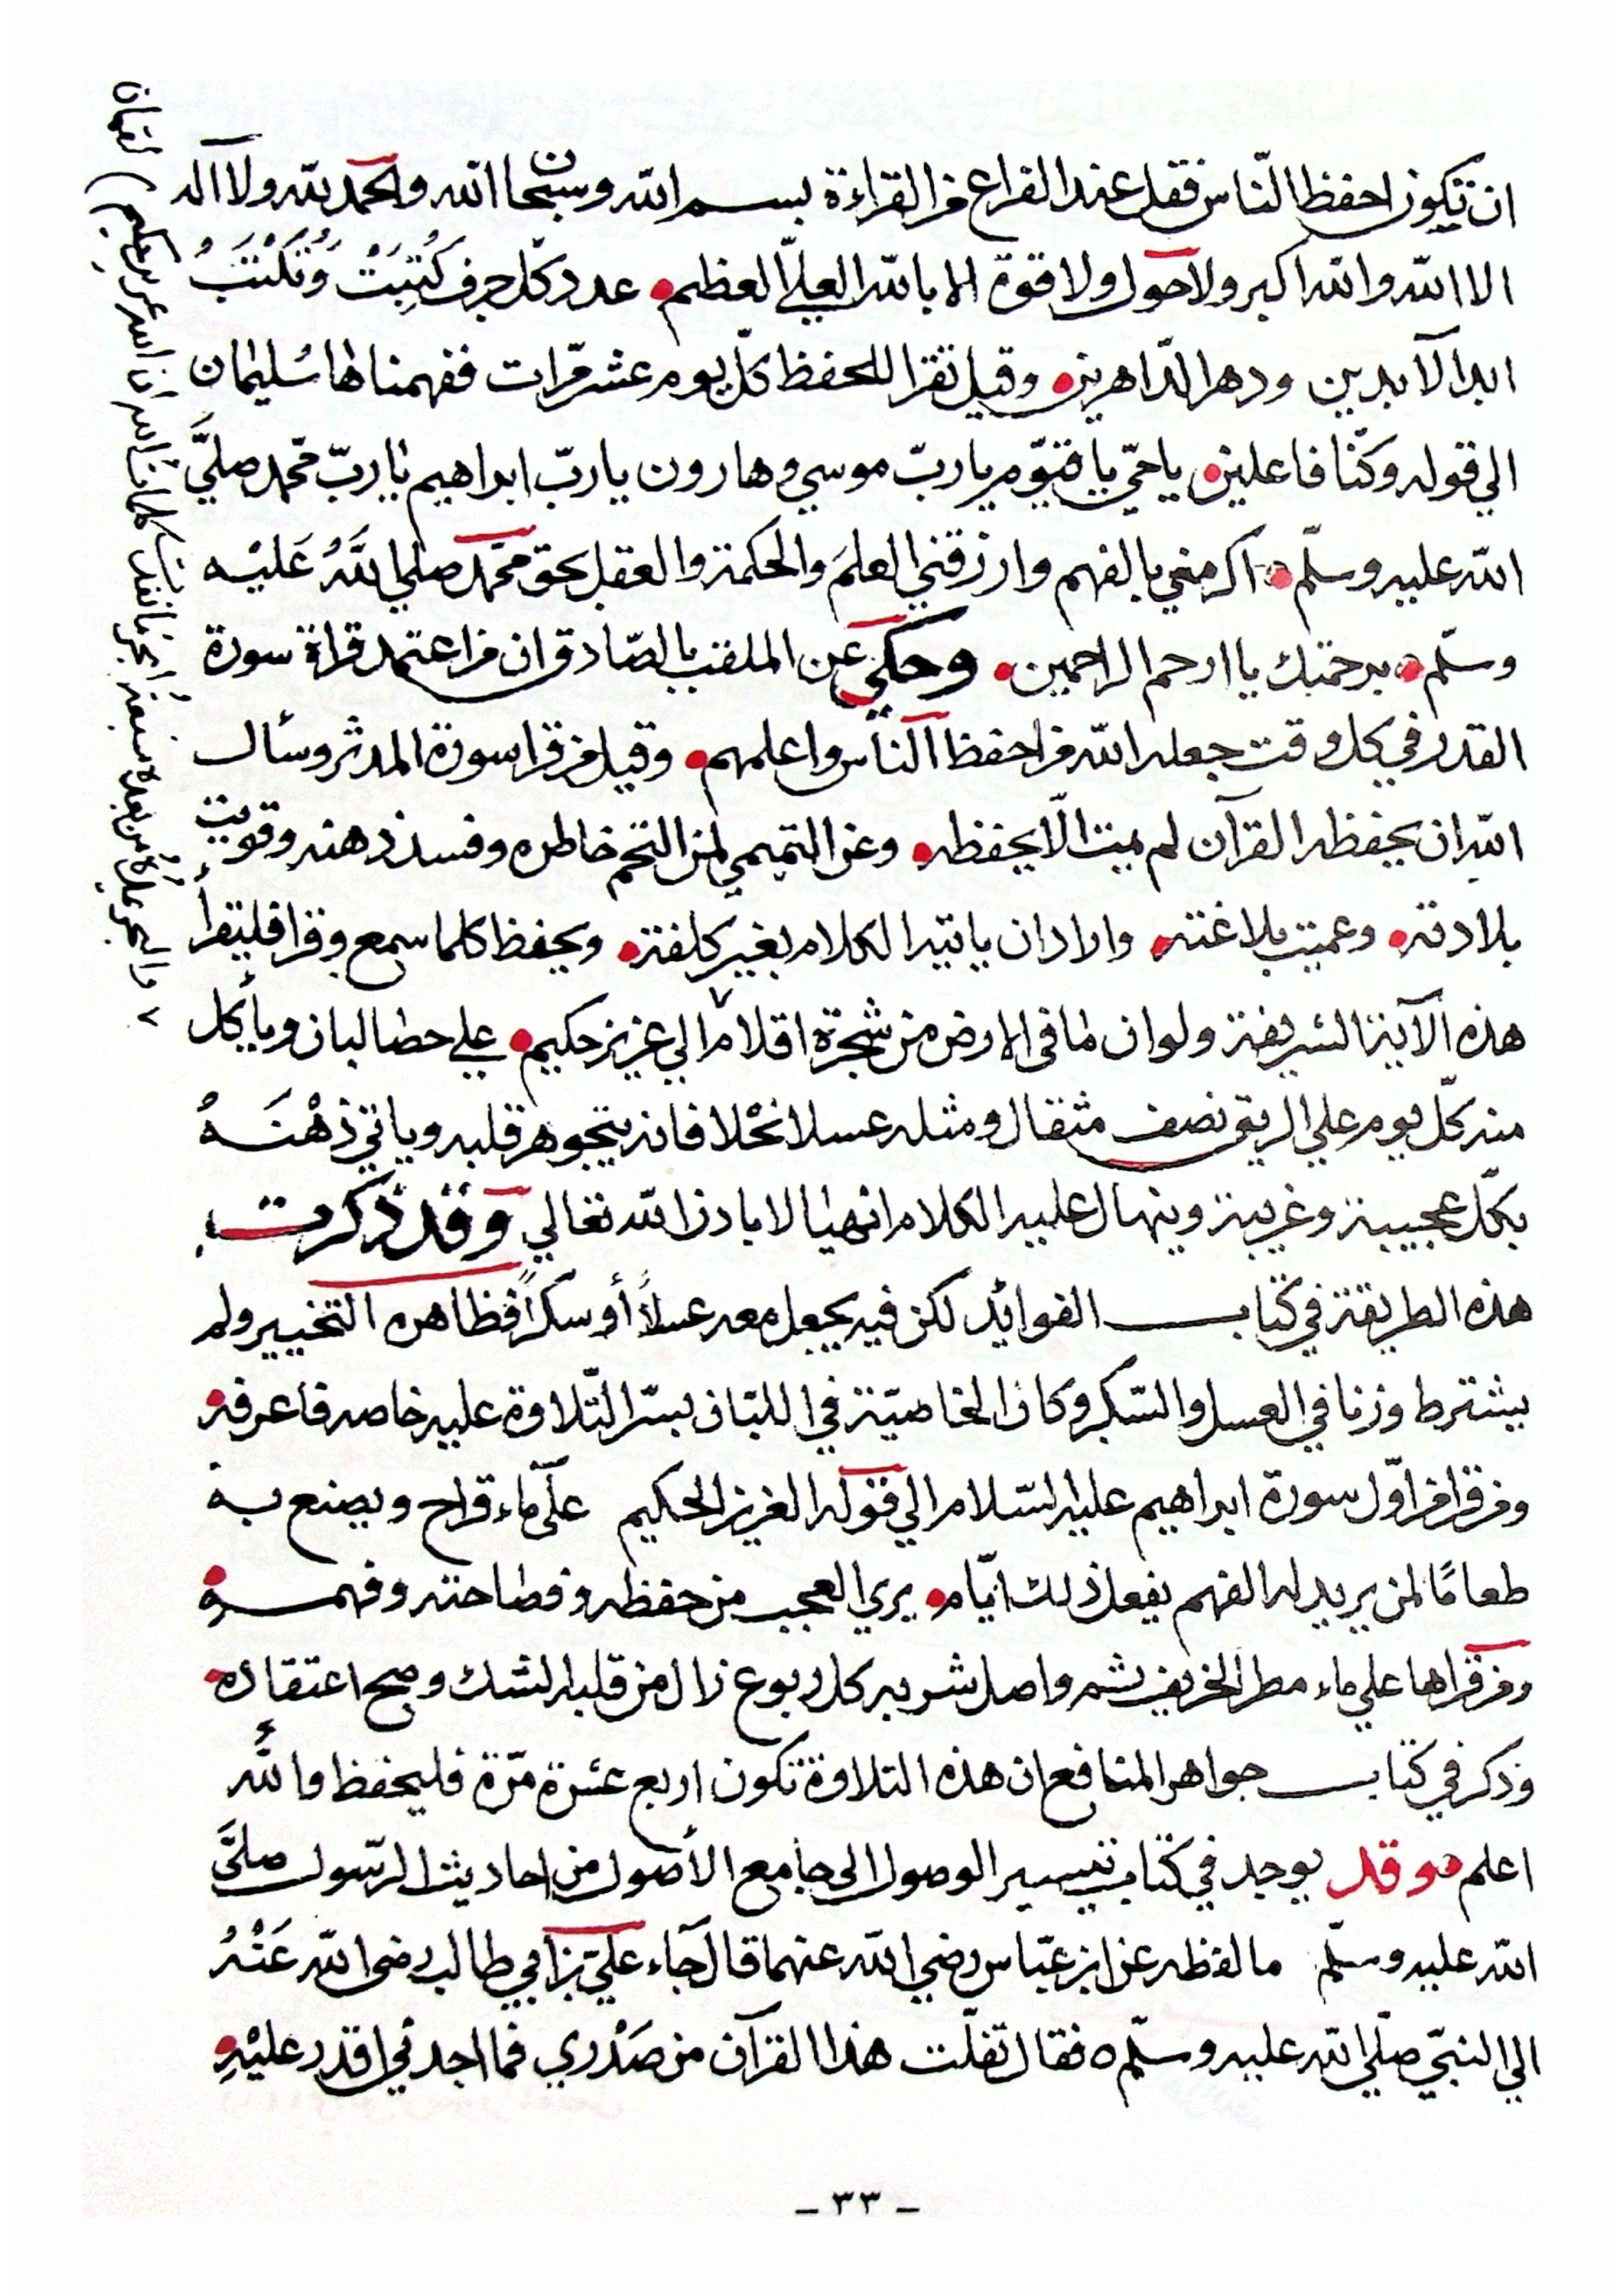 ان تكون احفظ الناس فقل عند الفراغ من القراءة بسم الله وسبحان الله والحمد لله ولا اله
الا الله والله اكبر ولا حول ولا قوة الا بالله العليّ العظيم • عدد كل حرف كُتِبَتْ وَتُكْتَبُ
ابد الآبدين ودهر الدّاهرين • وقيل تقرا للحفظ كلّ يوم عشر مرّات ففهمناها سُليمان
الي قوله وكنّا فاعلين • يا حيّ يا قيّوم يا ربّ موسي وهارون يا ربّ ابراهيم يا ربّ محمد صلَّي
الله عليه وسلّم • اكرمني بالفهم وارزقني العلمَ والحكمة والعقل بحق محمّد صلي اللَّهُ عَليْه
وسلّم • برحمتك يا ارحم الراحمين • وحكي عن الملقب بالصّادق ان من اعتمد قراة سورة
القدر في كل وقت جعله الله من احفظ الناس واعلمهم • وقيل من قرا سورة المدثر وسأل
الله ان يحفظه القرآن لم يمت الّا يحفظه • وعن التميمي لمن التخم خاطره وفسد ذهنه وقويت
بلادته • وعميت بلاغته • واراد ان ياتيه الكلام بغير كلفة • ويحفظ كلما سمع وقرا فليقرأ
هذه الآية الشريفة ولو ان ما في الارض من شجرة اقلام ٧ الي عزيز حكيم • علي حصا لبان ويأكل
منه كلّ يوم علي الريق نصف مثقال ومثله عسلا نحْلا فانه يتجوهر قلبه وياتي ذهْنَهُ
بكلّ عجيبة وغريبة وينهال عليه الكلام انهيالا باذن الله تعالي وقد ذكرت
هذه الطريقة في كتاب الفوائد لكن فيه يجعل معه عسلاً أو سكراً فظاهره التخيير ولم
يشترط وزنا في العسل والسّكر وكان الخاصيّة في اللبّان بسرّ التّلاوة عليه خاصه فاعرفه •
ومن قرا من اوّل سورة ابراهيم عليه السّلام الي قوله العزيز الحكيم علي ماء قراح ويصنع به
طعامًا لمن يريد له الفهم يفعل ذلك ايّام • يري العجب من حفظه وفصاحته وفهمه •
ومن قراها علي ماء مطر الخريف ثم واصل شربه كل ربوع زال من قلبه الشك وصح اعتقاده •
وذكر في كتاب جواهر المنافع ان هذه التلاوة تكون اربع عشرة مرّة فليحفظ والله
اعلم • وقد يوجد في كتاب تيسير الوصول الى جامع الأصول من احاديث الرّسول صلَّى
الله عليه وسلّم ما لفظه عن ابن عبّاس رضي الله عنهما قال جاء عليّ بن أبي طالب رضى الله عَنْهُ
الي النبيّ صلّي الله عليه وسلّم ٥ فقال تفلّت هذا القرآن من صَدْري فما اجدني اقدر عليْهِ •
٧ والبحر يمده من بعده سبعة أبحر ما نفدت كلمات الله ان الله عزيز حكيم) لقمان
- ٣٣ -